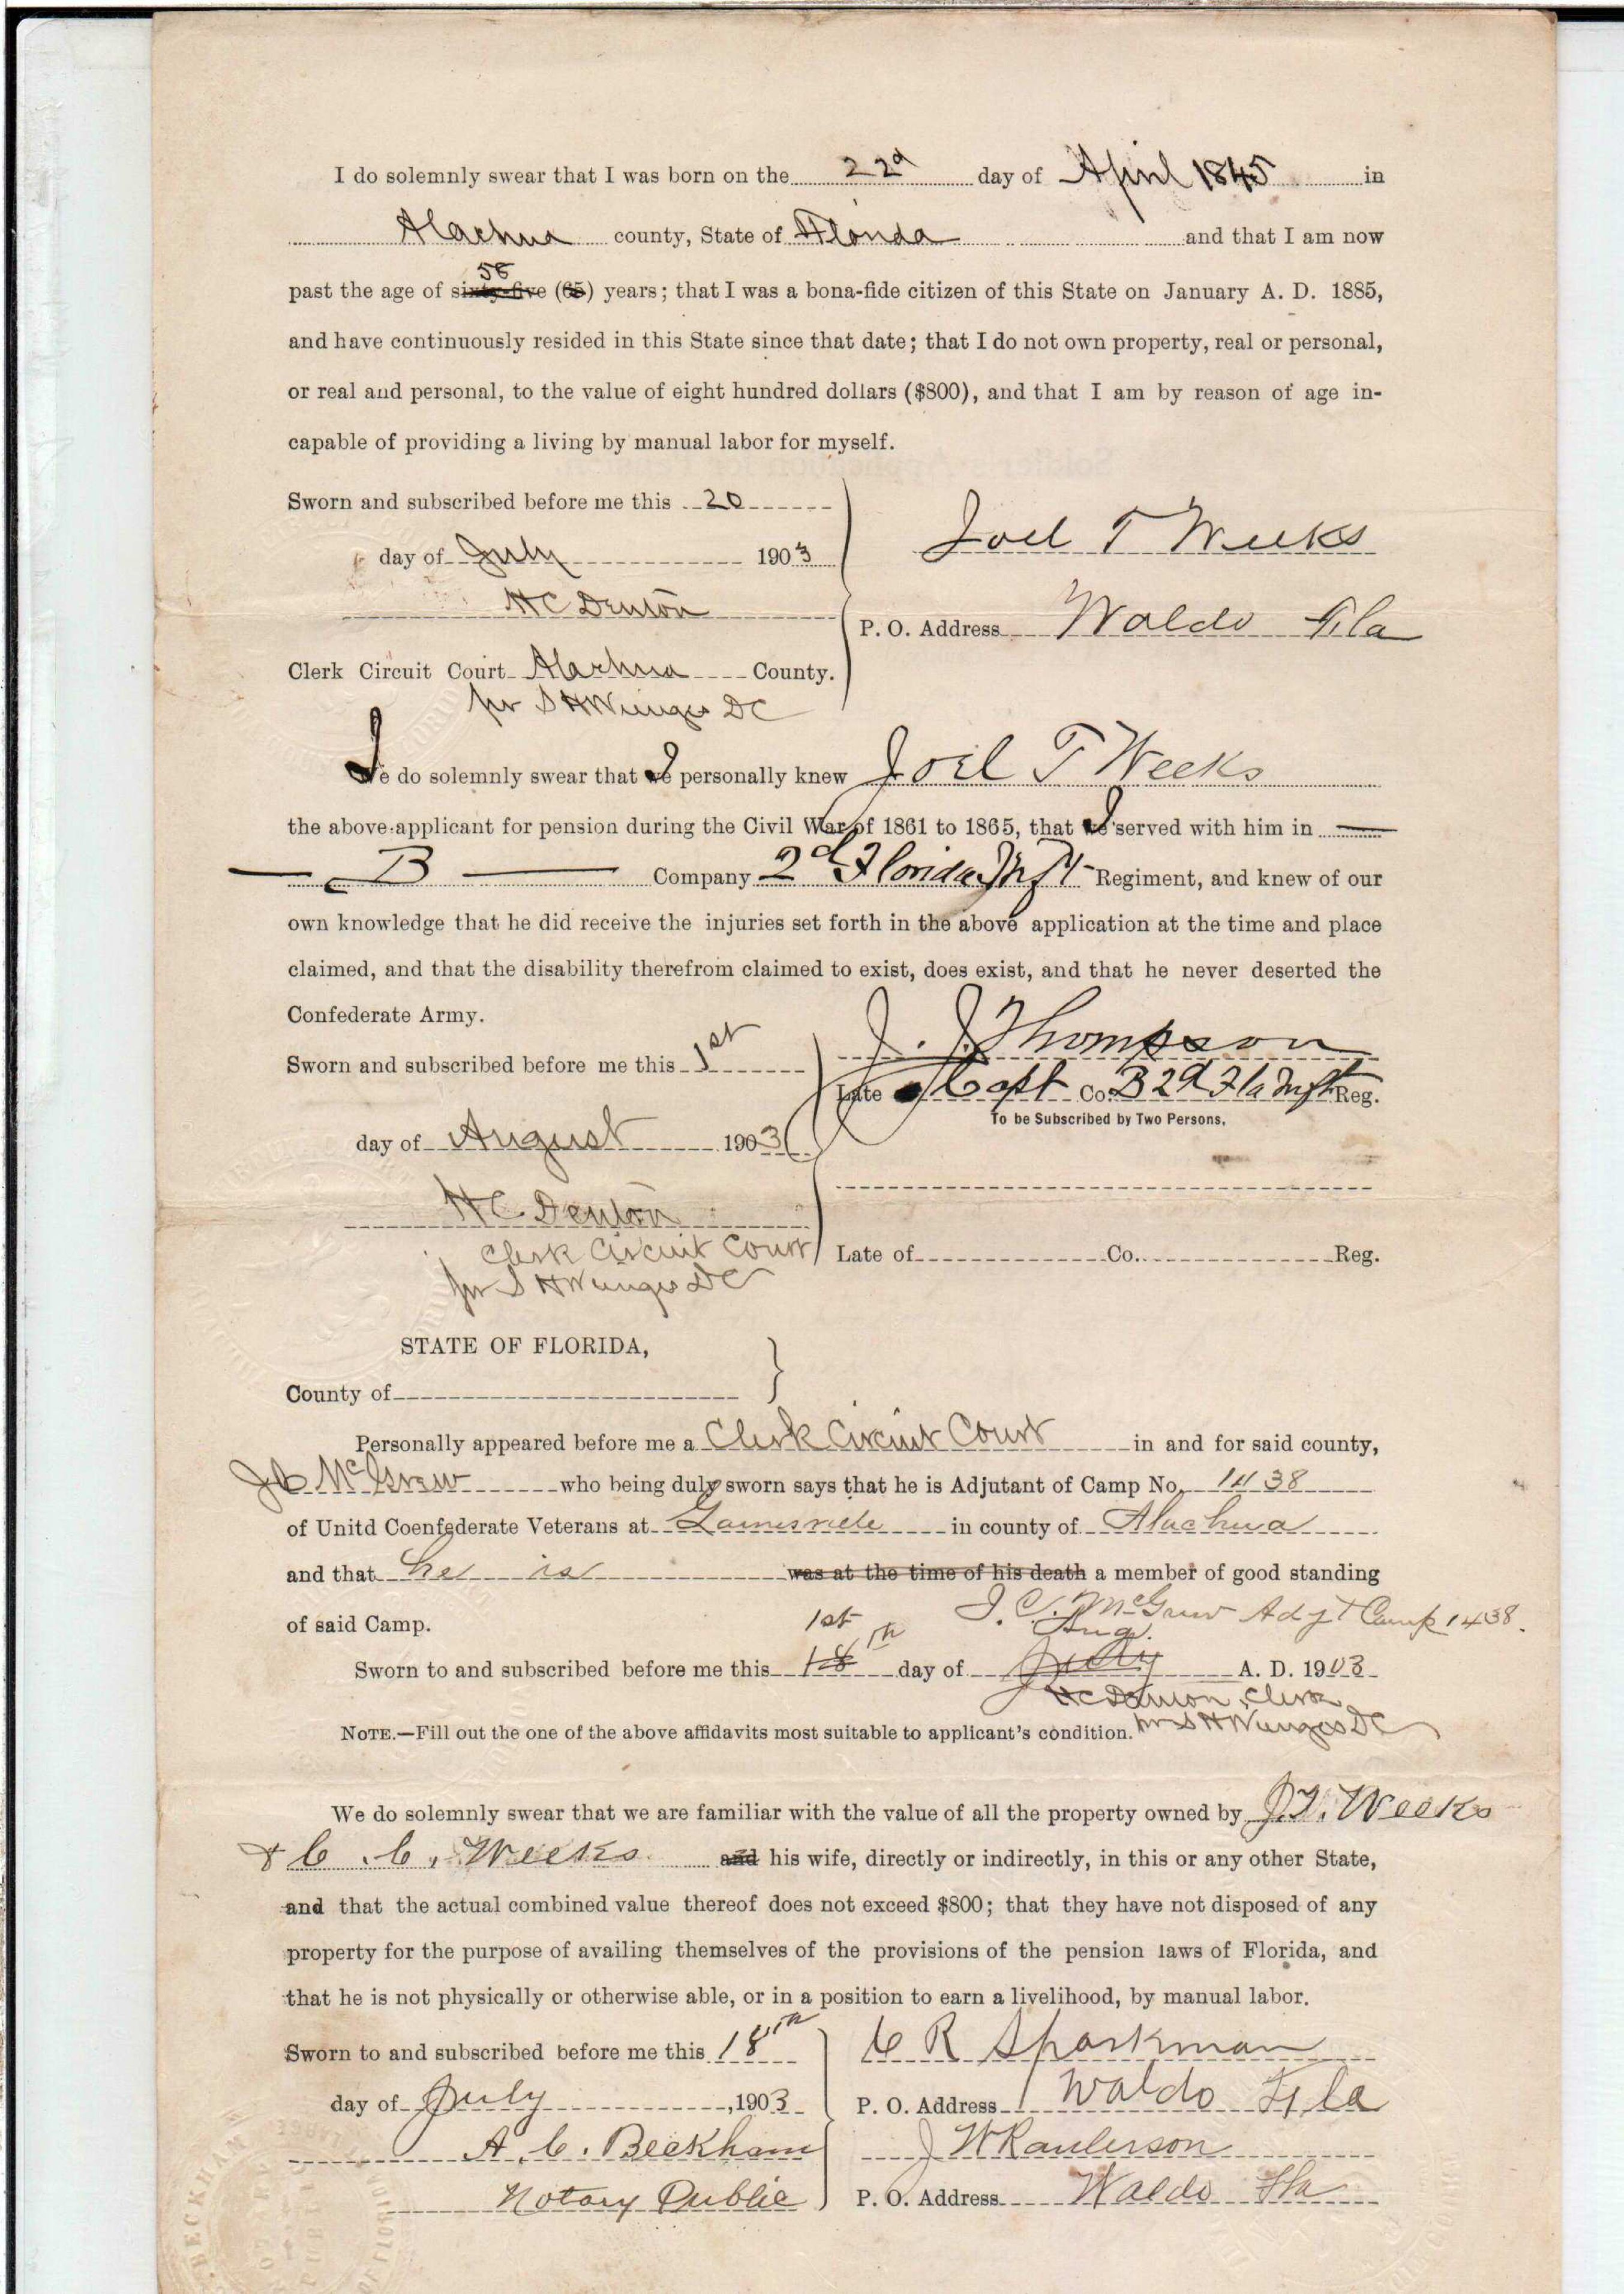 I do solemnly swear that I was born on the 22d day of April 1845 in
Alachua county, State of Florida and that I am now
58
past the age of sixty-five (65) years; that I was a bona-fide citizen of this State on January A. D. 1885,
and have continuously resided in this State since that date; that I do not own property, real or personal,
or real and personal, to the value of eight hundred dollars ($800), and that I am by reason of age in-
capable of providing a living by manual labor for myself.
Sworn and subscribed before me this 20
Joel T Weeks
day of July 1903
HC Denton
P. O. Address Waldo Fla
Clerk Circuit Court Alachua County.
per S H DC
I e do solemnly swear that I personally knew Joel T Weeks
the above applicant for pension during the Civil War of 1861 to 1865, that I served with him in
B Company 2d Florida Inft Regiment, and knew of our
own knowledge that he did receive the injuries set forth in the above application at the time and place
claimed, and that the disability therefrom claimed to exist, does exist, and that he never deserted the
Confederate Army.
J. J. Thompson
Sworn and subscribed before me this 1st
Late of Capt Co. B 2d Fla Inft Reg.
To be Subscribed by Two Persons.
day of August 1903
HC Denton
Clerk Circuit Court
Late of Co. Reg.
per S H DC
STATE OF FLORIDA,
County of
Personally appeared before me a Clerk Circuit Court in and for said county,
McGrew who being duly sworn says that he is Adjutant of Camp No. 1438
of Unitd Coenfederate Veterans at Gainesville in county of Alachua
and that he is was at the time of his death a member of good standing
of said Camp. J. C. McGrew Adjt Camp 1438.
1st Aug.
Sworn to and subscribed before me this 18th day of July A. D. 1903
HC Denton, Clerk
NOTE.—Fill out the one of the above affidavits most suitable to applicant's condition. per S H DC
We do solemnly swear that we are familiar with the value of all the property owned by J. T. Weeks
& C. C. Weeks and his wife, directly or indirectly, in this or any other State,
and that the actual combined value thereof does not exceed $800; that they have not disposed of any
property for the purpose of availing themselves of the provisions of the pension laws of Florida, and
that he is not physically or otherwise able, or in a position to earn a livelihood, by manual labor.
Sworn to and subscribed before me this 18th
C R Sparkman
day of July, 1903
P. O. Address Waldo Fla
A. C. Beckham
J W Raulerson
Notary Public
P. O. Address Waldo Fla
BECKHAM